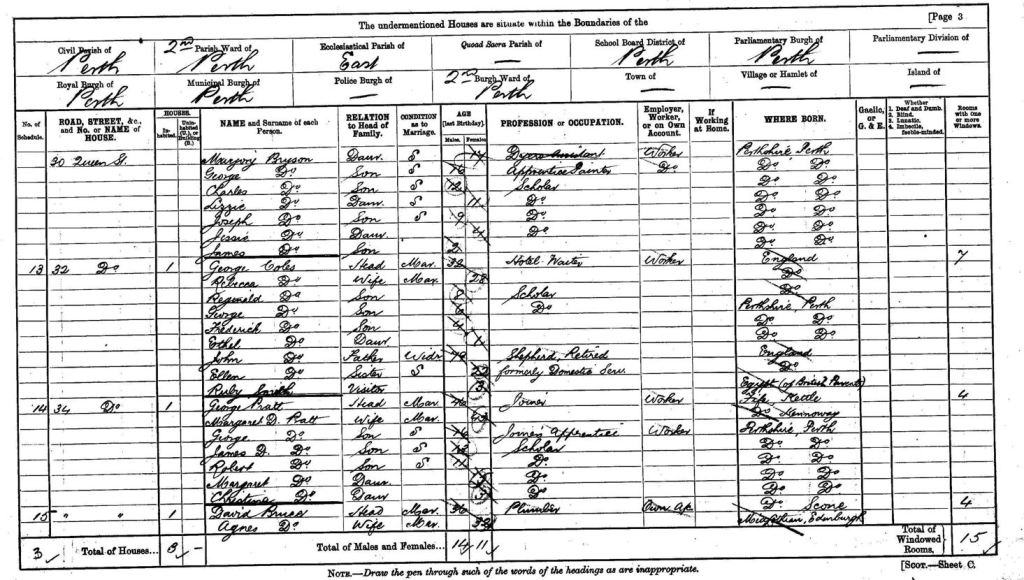 The undermentioned Houses are situate within the Boundaries of the
[Page 3
Civil Parish of Perth
2nd Parish Ward of Perth
Ecclesiastical Parish of East
Quoad Sacra Parish of —
School Board District of Perth
Parliamentary Burgh of Perth
Parliamentary Division of —
Royal Burgh of Perth
Municipal Burgh of Perth
Police Burgh of —
2nd Burgh Ward of Perth
Town of —
Village or Hamlet of —
Island of —
No. of Schedule.
ROAD, STREET, &c., and No. or NAME of HOUSE.
HOUSES.
Inhabited.
Uninhabited (U.), or Building (B.)
NAME and Surname of each Person.
RELATION to Head of Family.
CONDITION as to Marriage.
AGE [last Birthday].
Males.
Females.
PROFESSION or OCCUPATION.
Employer, Worker, or on Own Account.
If Working at Home.
WHERE BORN.
Gaelic, or G. & E.
Whether
1. Deaf and Dumb.
2. Blind.
3. Lunatic.
4. Imbecile, feeble-minded.
Rooms with one or more Windows.
30 Queen St. Marjory Bryson Daur. S 14 Worker Perthshire, Perth
George Do Son S 16 Apprentice Painter Do Do Do
Charles Do Son S 12 Scholar Do Do
Lizzie Do Daur. S 11 Do Do Do
Joseph Do Son S 9 Do Do Do
Jessie Do Daur 4 Do Do
James Do Son 2 Do Do
13 32 Do 1 George Coles Head Mar. 32 Hotel Waiter Worker England 7
Rebecca Do Wife Mar. 28 Do
Reginald Do Son 8 Scholar Do
George Do Son 6 Do Perthshire, Perth
Frederick Do Son 4 Do Do
Ethel Do Daur 1 Do Do
John Do Father Widr 79 Shepherd, Retired England
Ellen Do Sister S 22 formerly Domestic Serv. Do
Ruby Visitor 3 Egypt (of British Parents)
14 34 Do 1 George Pratt Head Mar. Joiner Worker Fife, Kettle 4
Margaret D. Pratt Wife Mar. Do Kennoway
George Do Son S 16 Joiner's Apprentice Worker Perthshire, Perth
James D. Do Son S Scholar Do Do
Robert Do Son S 11 Do Do Do
Margaret Do Daur Do Do Do
Christina Do Daur Do Do Do
15 " " 1 David Bruce Head Mar. 36 Plumber Own Ac. Do Scone 4
Agnes Do Wife Mar. Midlothian, Edinburgh
3 Total of Houses... 3 – Total of Males and Females... 14 11 Total of Windowed Rooms, 15
NOTE.—Draw the pen through such of the words of the headings as are inappropriate.
[SCOT.—Sheet C.